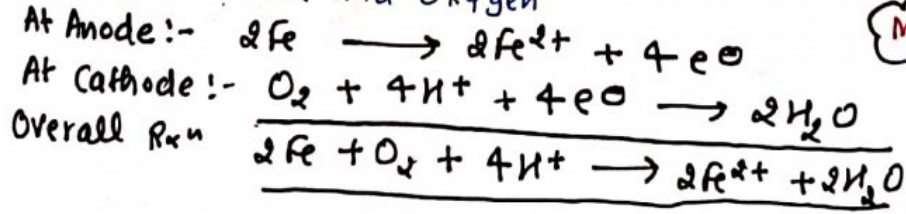 and Oxygen
At Anode :- 2Fe ⟶ 2Fe²⁺ + 4e⊖
At Cathode :- O₂ + 4H⁺ + 4e⊖ ⟶ 2H₂O
Overall Rxn 2Fe + O₂ + 4H⁺ ⟶ 2Fe²⁺ + 2H₂O